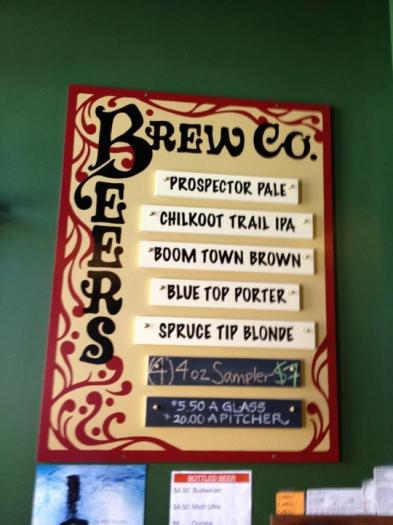 BREW CO.
BEERS
PROSPECTOR PALE
CHILKOOT TRAIL IPA
BOOM TOWN BROWN
BLUE TOP PORTER
SPRUCE TIP BLONDE
(4) 4oz Sampler $7
$5.50 A GLASS
20.00 A PITCHER
BOTTLED BEER
$4.50 Budweiser
$4.50 Mich Ultra
Corona